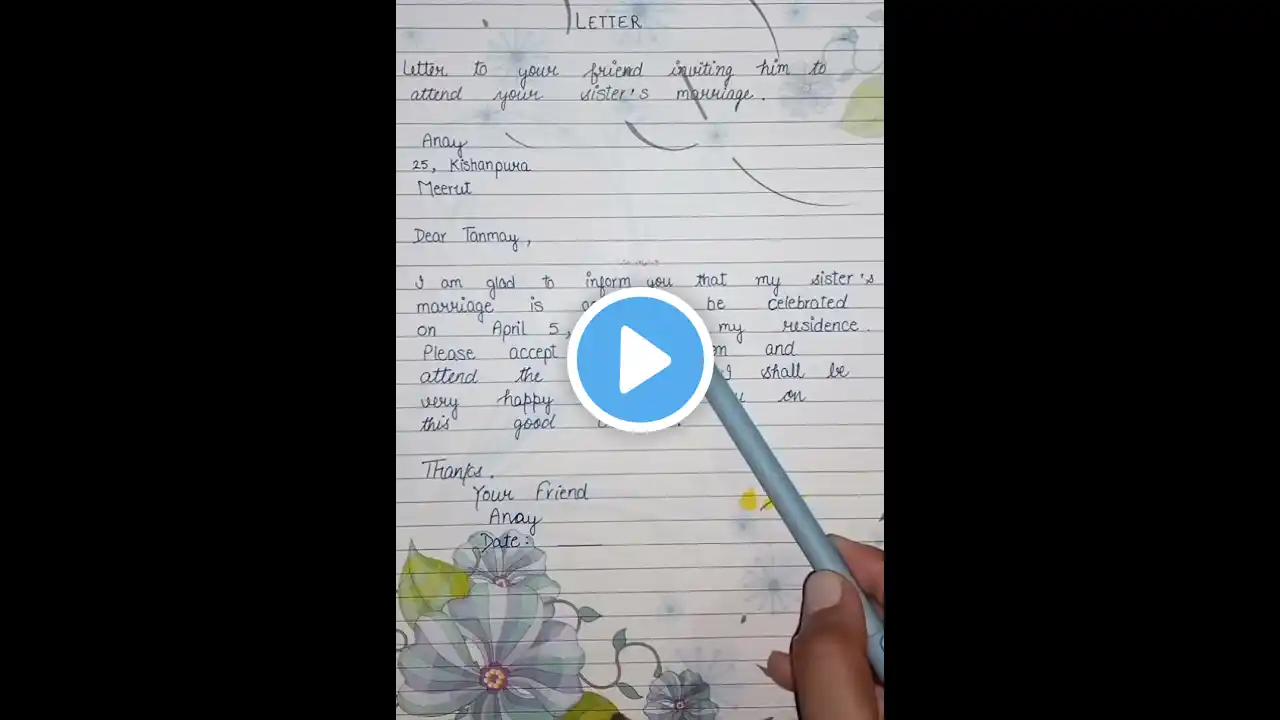 LETTER
Letter to your friend inviting him to
attend your sister's marriage.
Anay
25, Kishanpura
Meerut
Dear Tanmay,
I am glad to inform you that my sister's
marriage is be celebrated
on April 5, my residence.
Please accept and
attend the I shall be
very happy on
this good
Thanks.
Your Friend
Anay
Date: